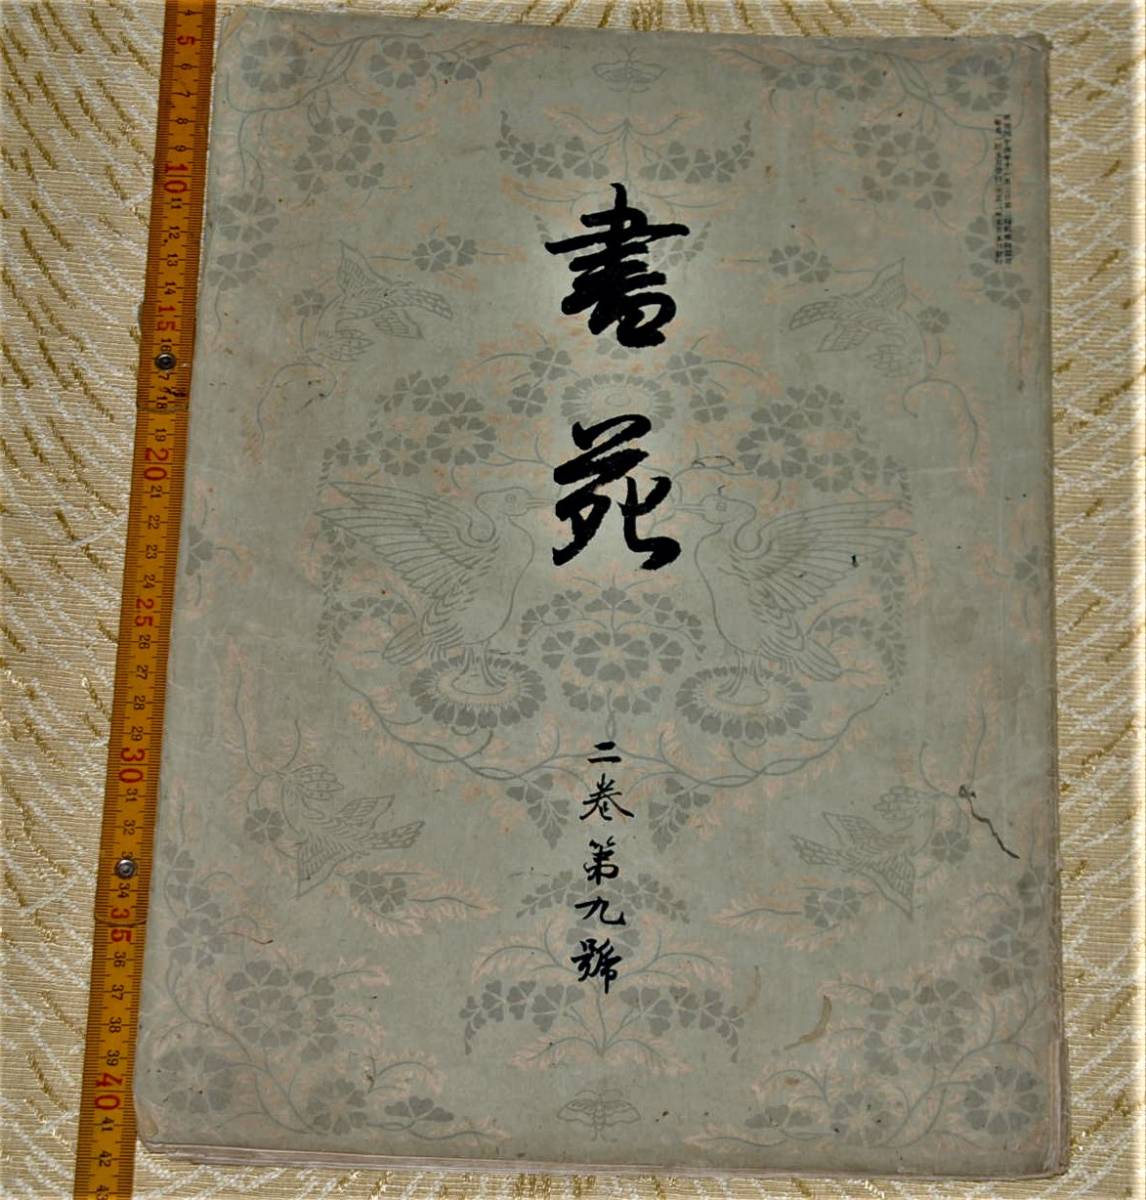 書苑
二卷第九號
4
5
6
7
8
9
10
11
12
13
14
15
16
17
18
19
20
21
22
23
24
25
26
27
28
29
30
31
32
34
35
36
37
38
39
40
41
42
43